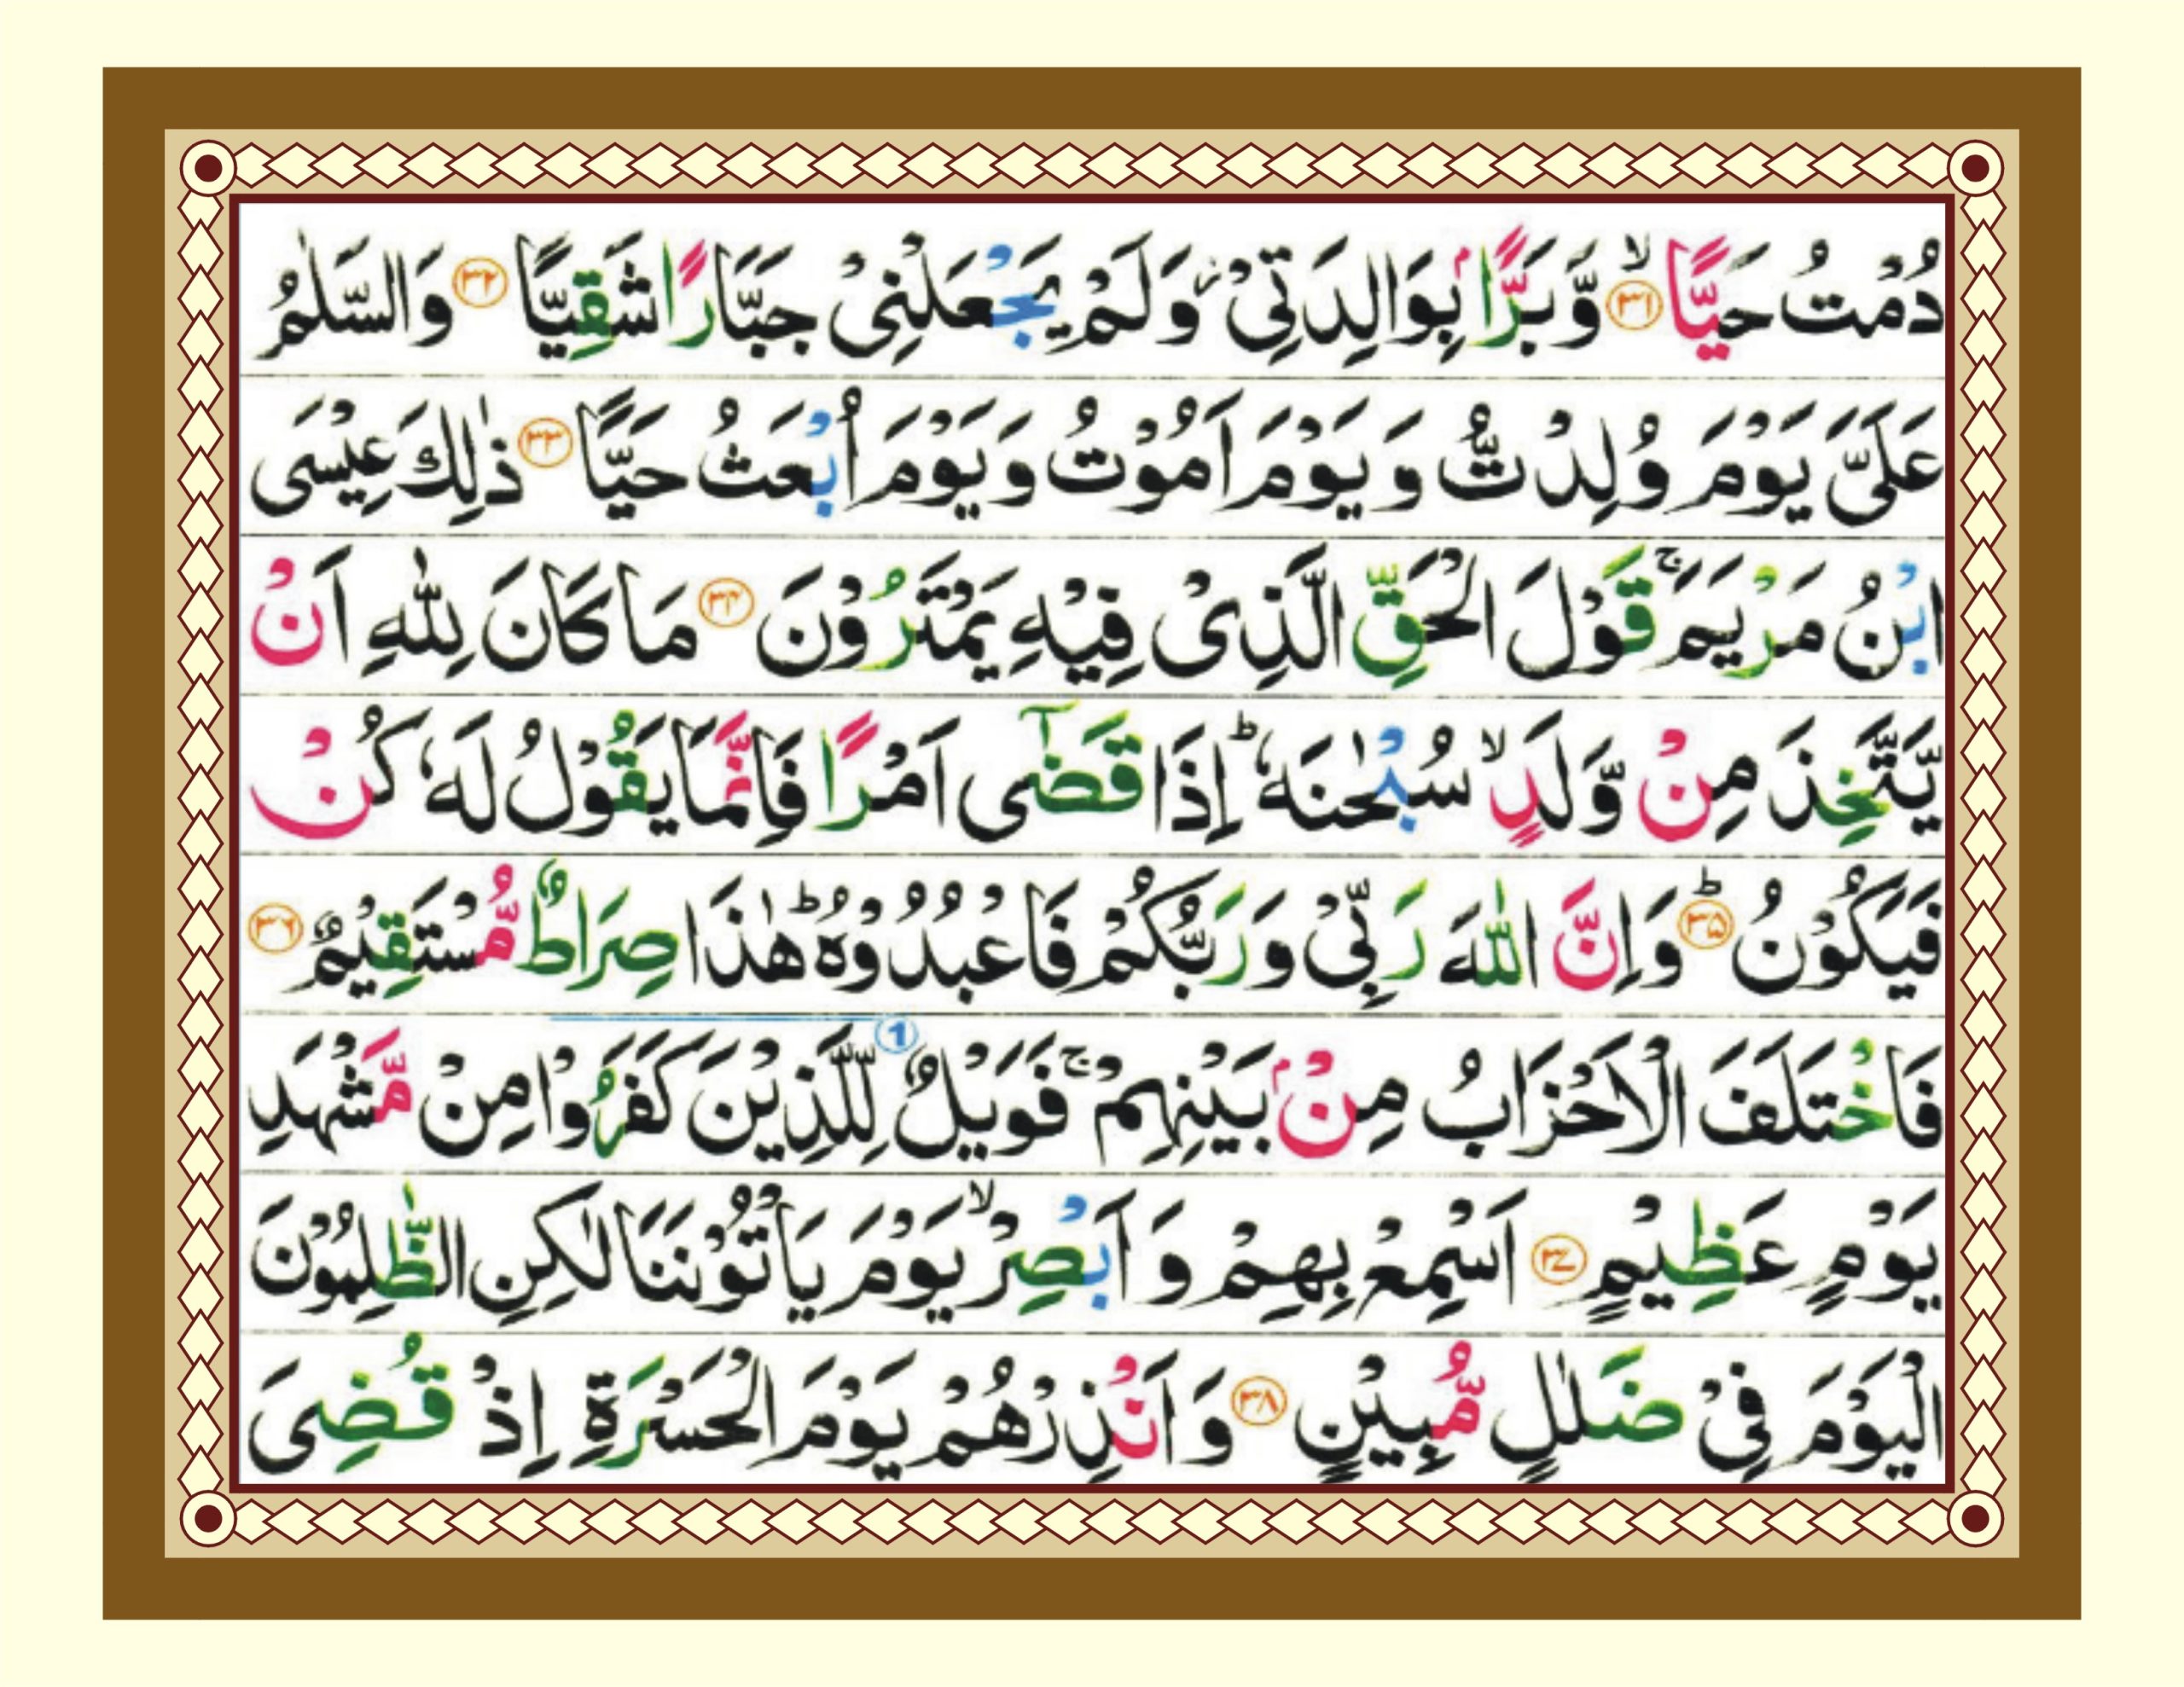 دُمْتُ حَيًّا ۙ﴿۳۱﴾ وَّبَرًّۢا بِوَالِدَتِیْ ؗ وَلَمْ یَجْعَلْنِیْ جَبَّارًا شَقِیًّا ﴿۳۲﴾ وَالسَّلٰمُ
عَلَیَّ یَوْمَ وُلِدْتُّ وَیَوْمَ اَمُوْتُ وَیَوْمَ اُبْعَثُ حَیًّا ﴿۳۳﴾ ذٰلِكَ عِیْسَی
ابْنُ مَرْیَمَ ۚ قَوْلَ الْحَقِّ الَّذِیْ فِیْهِ یَمْتَرُوْنَ ﴿۳۴﴾ مَا كَانَ لِلّٰهِ اَنْ
یَّتَّخِذَ مِنْ وَّلَدٍ ۙ سُبْحٰنَهٗ ؕ اِذَا قَضٰۤی اَمْرًا فَاِنَّمَا یَقُوْلُ لَهٗ كُنْ
فَیَكُوْنُ ؕ﴿۳۵﴾ وَاِنَّ اللّٰهَ رَبِّیْ وَرَبُّكُمْ فَاعْبُدُوْهُ ؕ هٰذَا صِرَاطٌ مُّسْتَقِیْمٌ ﴿۳۶﴾
فَاخْتَلَفَ الْاَحْزَابُ مِنْۢ بَیْنِهِمْ ۚ فَوَیْلٌ 1 لِّلَّذِیْنَ كَفَرُوْا مِنْ مَّشْهَدِ
یَوْمٍ عَظِیْمٍ ﴿۳۷﴾ اَسْمِعْ بِهِمْ وَ اَبْصِرْ ۙ یَوْمَ یَاْتُوْنَنَا لٰكِنِ الظّٰلِمُوْنَ
الْیَوْمَ فِیْ ضَلٰلٍ مُّبِیْنٍ ﴿۳۸﴾ وَاَنْذِرْهُمْ یَوْمَ الْحَسْرَةِ اِذْ قُضِیَ